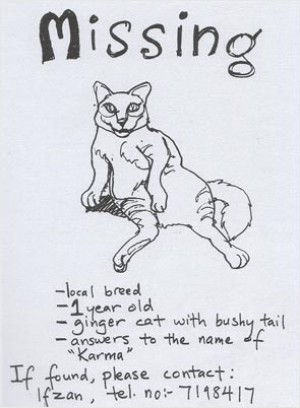 Missing
-local breed
-1 year old
-ginger cat with bushy tail
-answers to the name of
"Karma"
If found, please contact:
Ifzan, tel. no:- 7198417